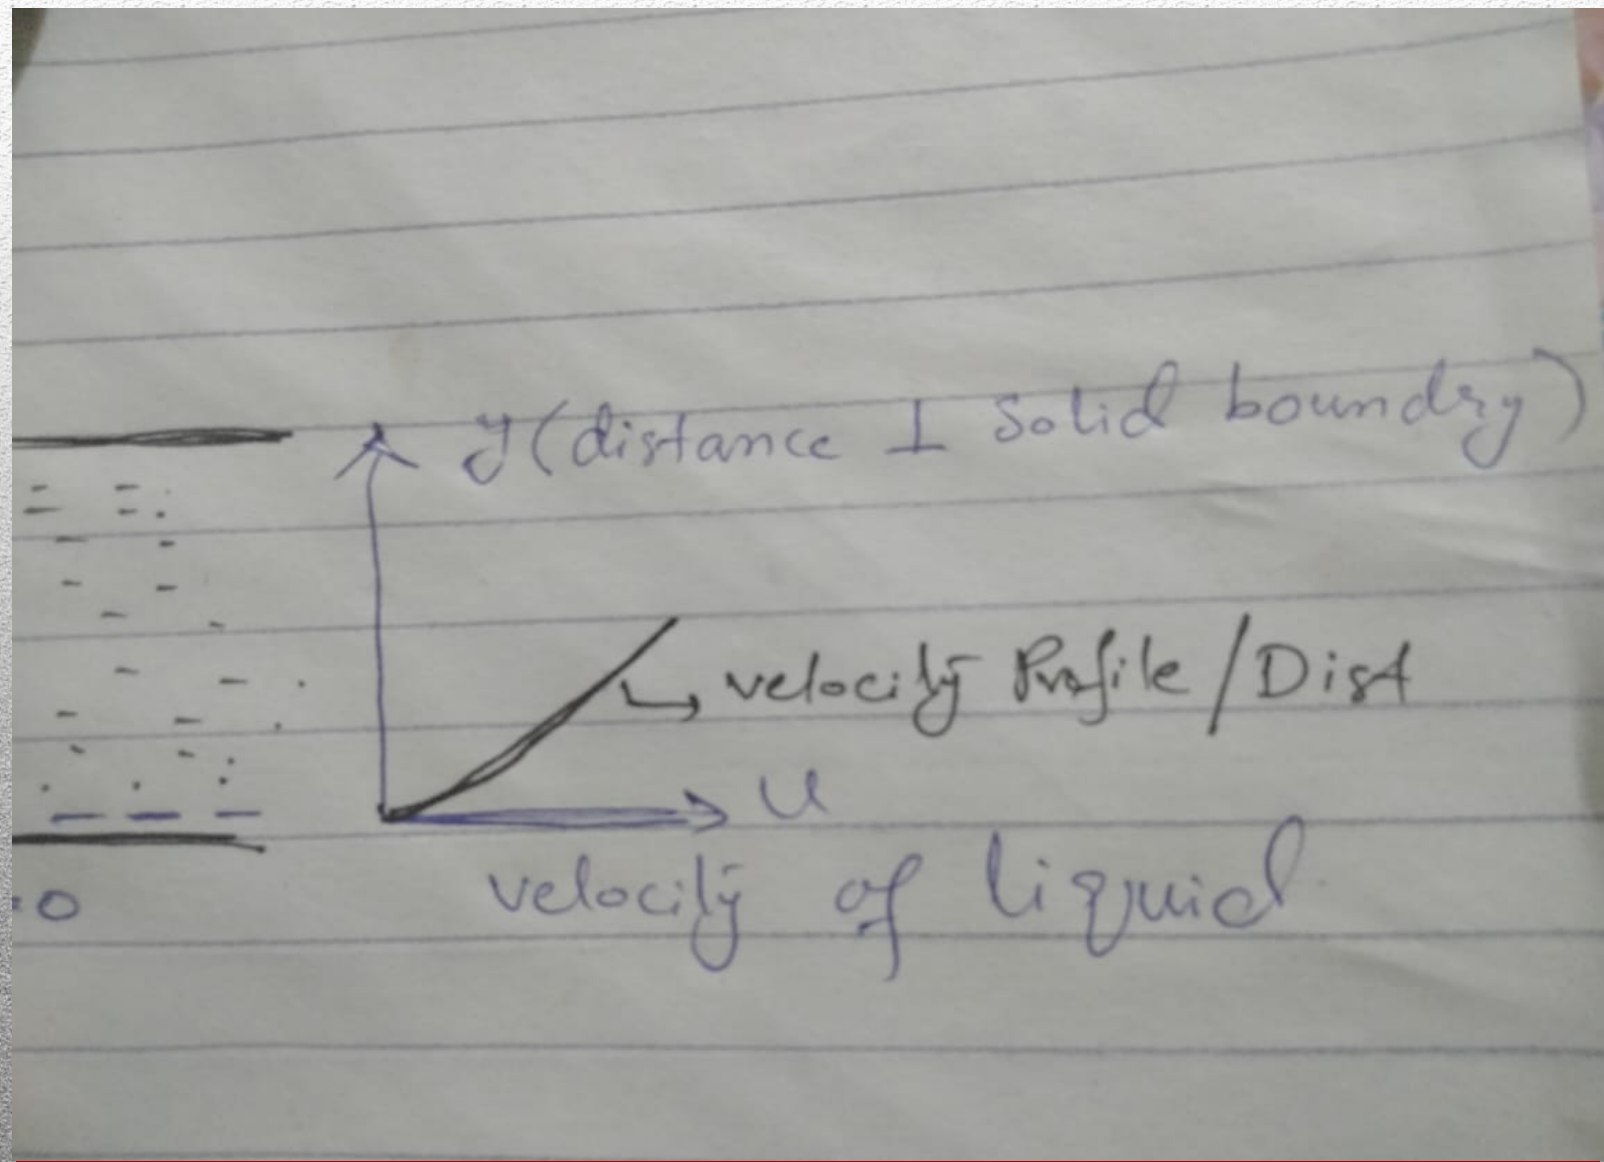 y (distance ⊥ solid boundry)
velocity Profile / Dist
u
=0
velocity of liquid